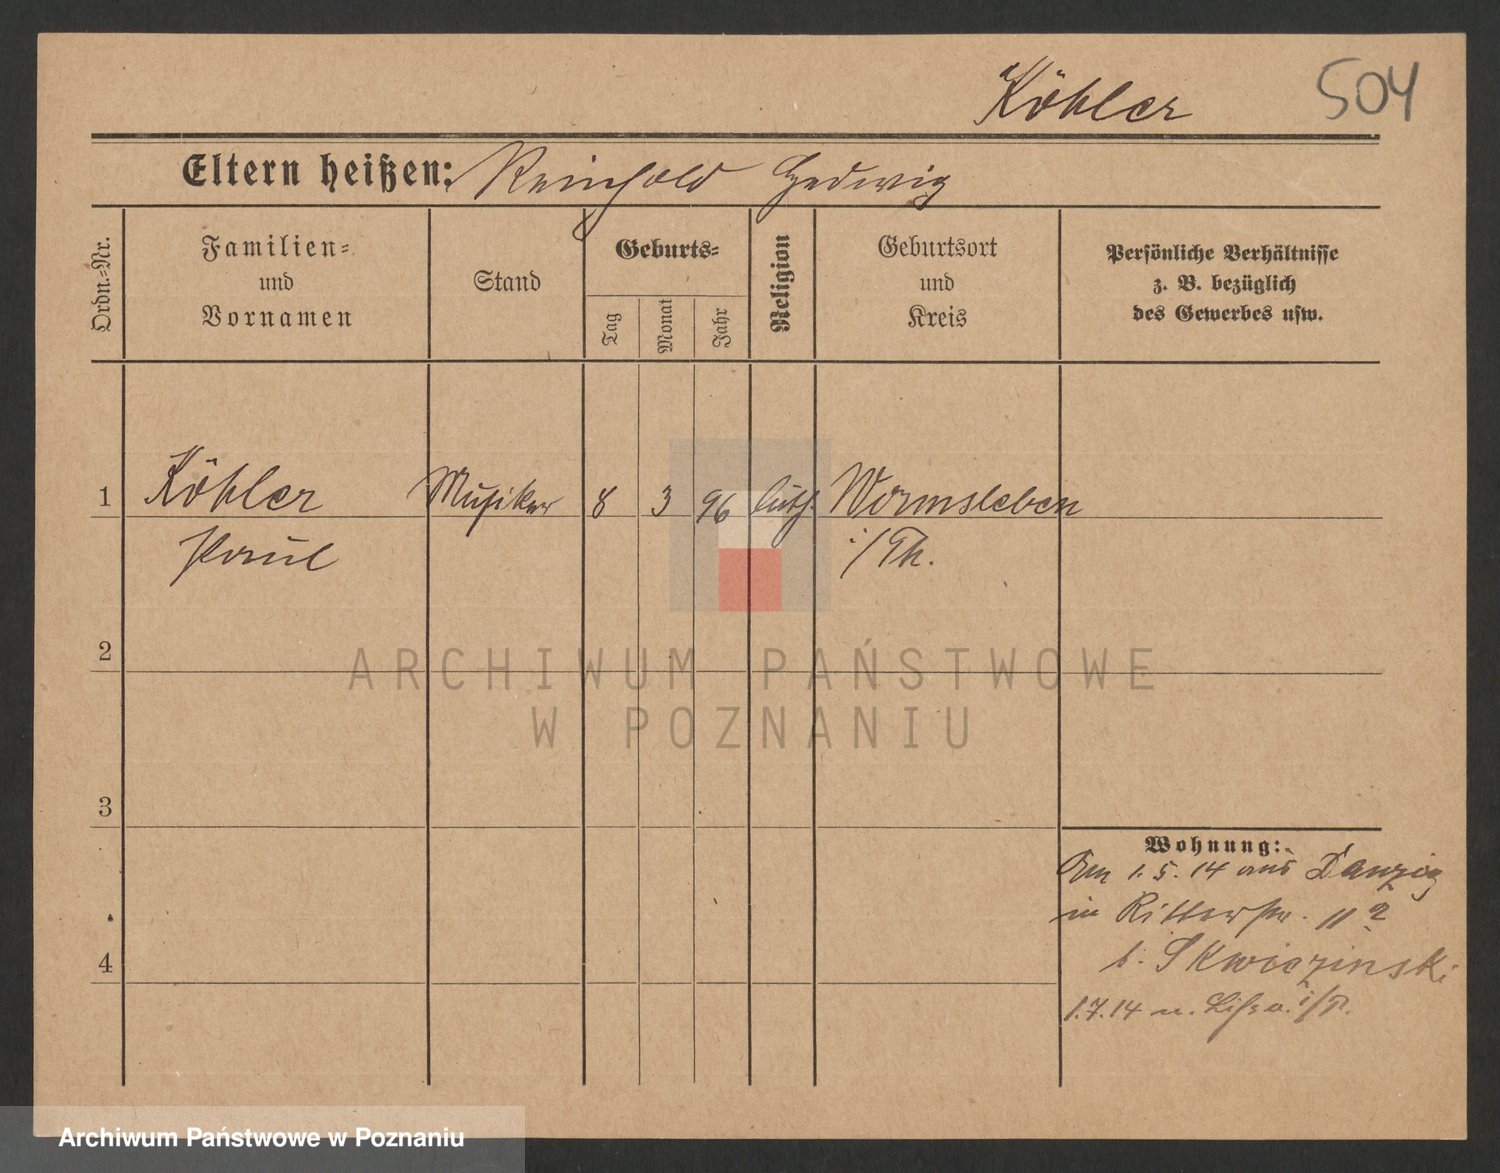 Köhler 504
Eltern heißen: Reinhold Hedwig
Ordn.-Nr.
Familien-
und
Vornamen
Stand
Geburts-
Tag
Monat
Jahr
Religion
Geburtsort
und
Kreis
Persönliche Verhältnisse
z. B. bezüglich
des Gewerbes usw.
1 Köhler Musiker 8 3 96 luth. Wormsleben
Paul i/Th.
2
ARCHIWUM PAŃSTWOWE
W POZNANIU
3
Wohnung:
Am 1.5.14 aus Danzig
in Ritterstr. 11
b. Skwiczinski
4
1.7.14 n. Lissa i/P.
Archiwum Państwowe w Poznaniu